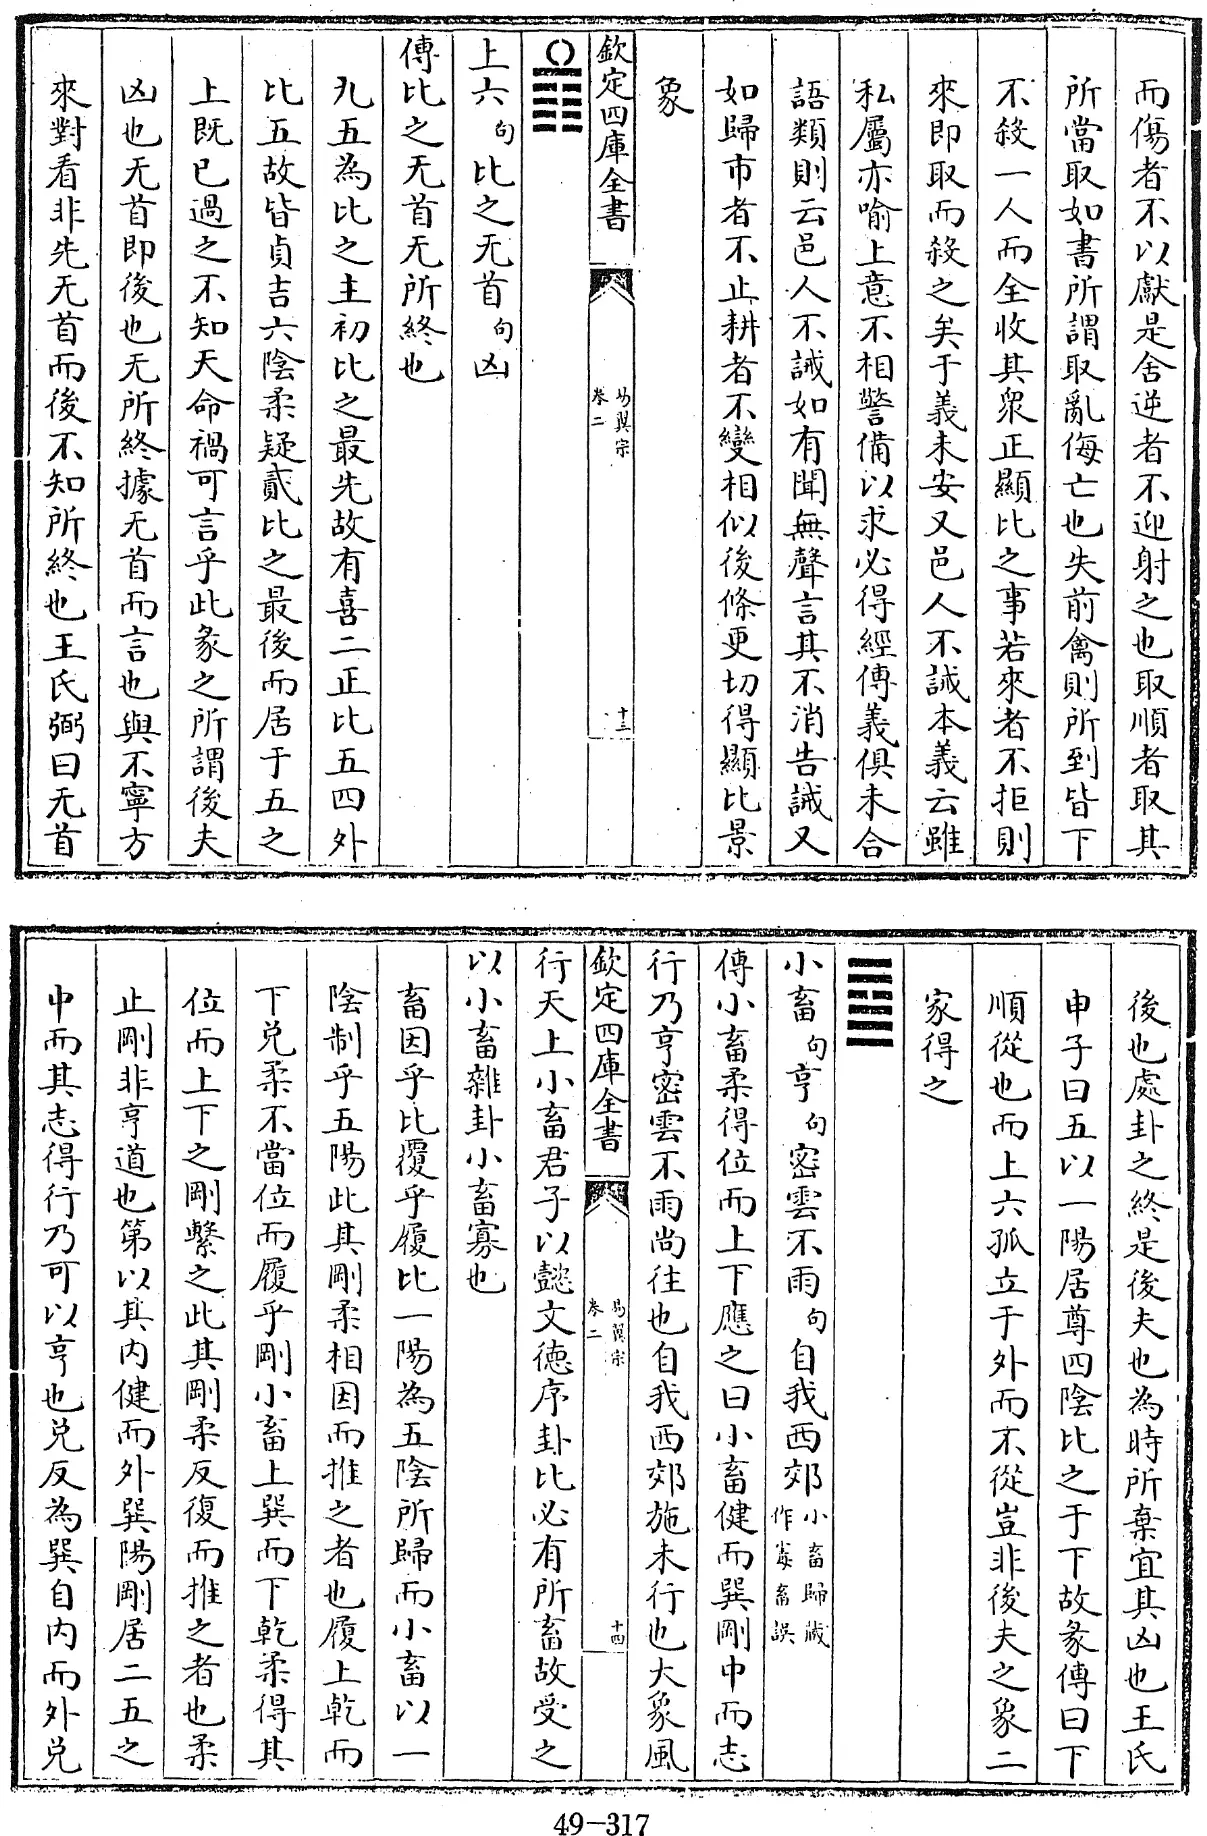 而傷者不以獻是舍逆者不迎射之也取順者取其
所當取如書所謂取亂侮亡也失前禽則所到皆下
不殺一人而全收其衆正顯比之事若來者不拒則
來即取而殺之矣于義未安又邑人不誡本義云雖
私屬亦喻上意不相警備以求必得經傳義俱未合
語類則云邑人不誡如有聞無聲言其不消告誡又
如歸市者不止耕者不變相似後條更切得顯比景
象
欽定四庫全書
易翼宗
卷二
十三
上六句比之无首句凶
傳比之无首无所終也
九五為比之主初比之最先故有喜二正比五四外
比五故皆貞吉六陰柔疑貳比之最後而居于五之
上既已過之不知天命禍可言乎此彖之所謂後夫
凶也无首即後也无所終據无首而言也與不寧方
來對看非先无首而後不知所終也王氏弼曰无首
後也處卦之終是後夫也為時所棄宜其凶也王氏
申子曰五以一陽居尊四陰比之于下故彖傳曰下
順從也而上六孤立于外而不從豈非後夫之象二
家得之
小畜句亨句密雲不雨句自我西郊小畜歸藏
作毒畜誤
傳小畜柔得位而上下應之曰小畜健而巽剛中而志
行乃亨密雲不雨尚往也自我西郊施未行也大象風
欽定四庫全書
易翼宗
卷二
十四
行天上小畜君子以懿文德序卦比必有所畜故受之
以小畜雜卦小畜寡也
畜因乎比覆乎履比一陽為五陰所歸而小畜以一
陰制乎五陽此其剛柔相因而推之者也履上乾而
下兌柔不當位而履乎剛小畜上巽而下乾柔得其
位而上下之剛繫之此其剛柔反復而推之者也柔
止剛非亨道也第以其内健而外巽陽剛居二五之
中而其志得行乃可以亨也兌反為巽自内而外兌
49-317